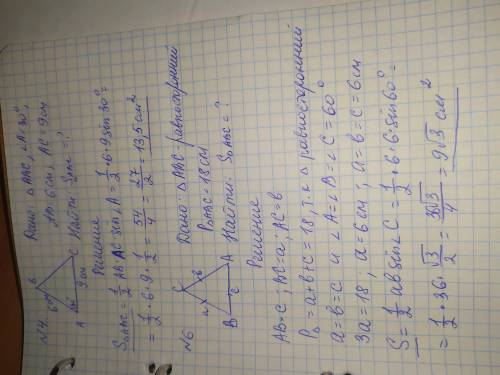 №4 Дано: △ABC, ∠A=30°
AB=6см AC=9см
Найти: S△ABC=?
Решение
S△ABC = 1/2 AB·AC sin∠A = 1/2 · 6·9 sin30° =
= 1/2 · 6·9 · 1/2 = 54/4 = 27/2 = 13,5см²
№6 Дано: △ABC равносторонний
P△ABC=18см
Найти: S△ABC=?
Решение
AB=c; BC=a; AC=b
P△=a+b+c=18, т.к △ равносторонний
a=b=c и ∠A=∠B=∠C=60°
3a=18; a=6см; a=b=c=6см
S=1/2 ab sin∠C = 1/2 · 6·6·sin60°=
= 1/2 · 36 · √3/2 = 36√3/4 = 9√3 см²